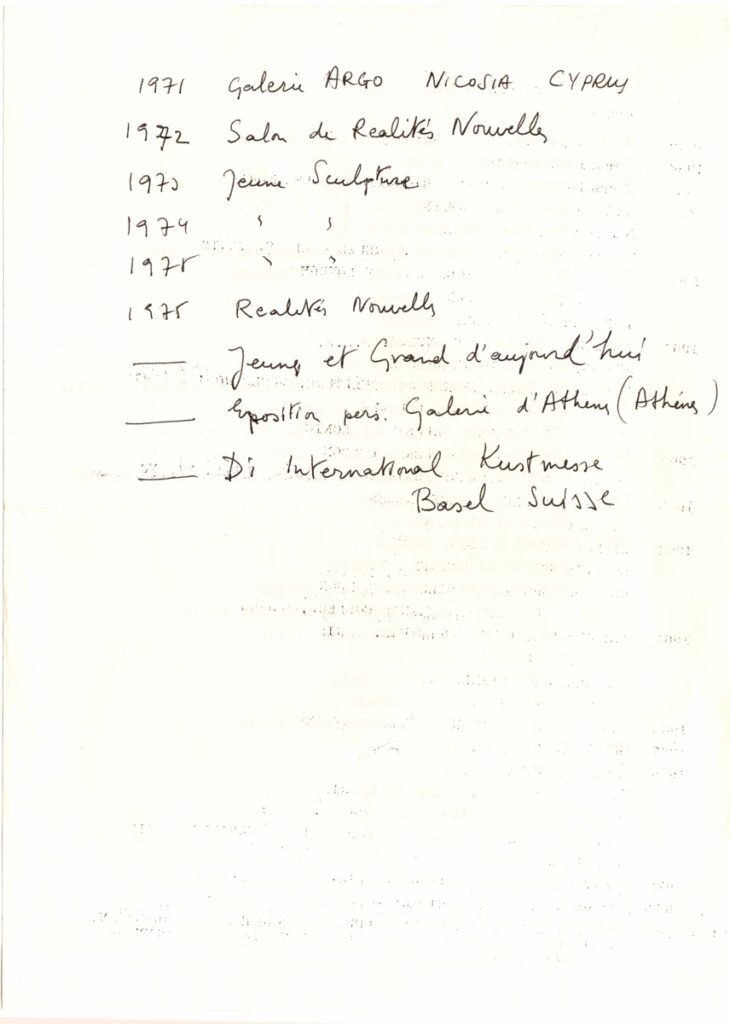 1971 Galerie ARGO NICOSIA CYPRUS
1972 Salon de Realités Nouvelles
1973 Jeune Sculpture
1974 " "
1975 " "
1975 Realités Nouvelles
—— Jeunes et Grand d'aujourd'hui
—— Eposition pers. Galerie d'Athens (Athénes)
—— Di International Kustmesse
Basel Suisse